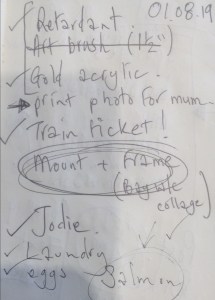 01.08.19
Retardant.
Art brush (1½")
Gold acrylic.
print photo for mum.
Train ticket!
Mount + Frame
(Bag life
collage)
Jodie.
Laundry
eggs
Salmon